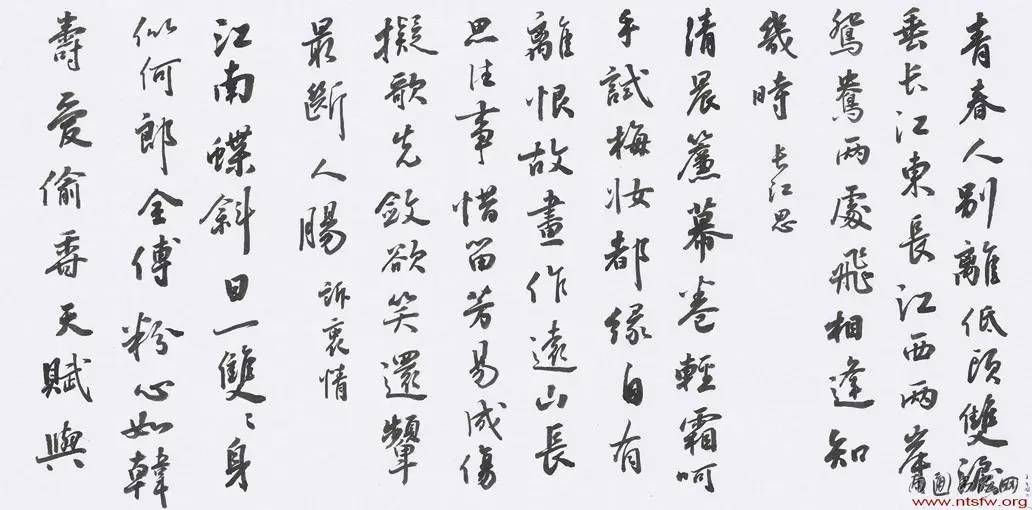 青春人别離低頭雙淚
垂长江東長江西两岸
鴛鴦两處飛相逢知
幾時 长江思
清晨簾幕卷輕霜呵
手試梅妝都緣自有
離恨故畫作遠山長
思往事惜留芳易成傷
擬歌先斂欲笑還顰
最斷人腸 訴衷情
江南蝶斜日一雙〻身
似何郎全傅粉心如韓
壽愛偷香天賦與
www.ntsfw.org